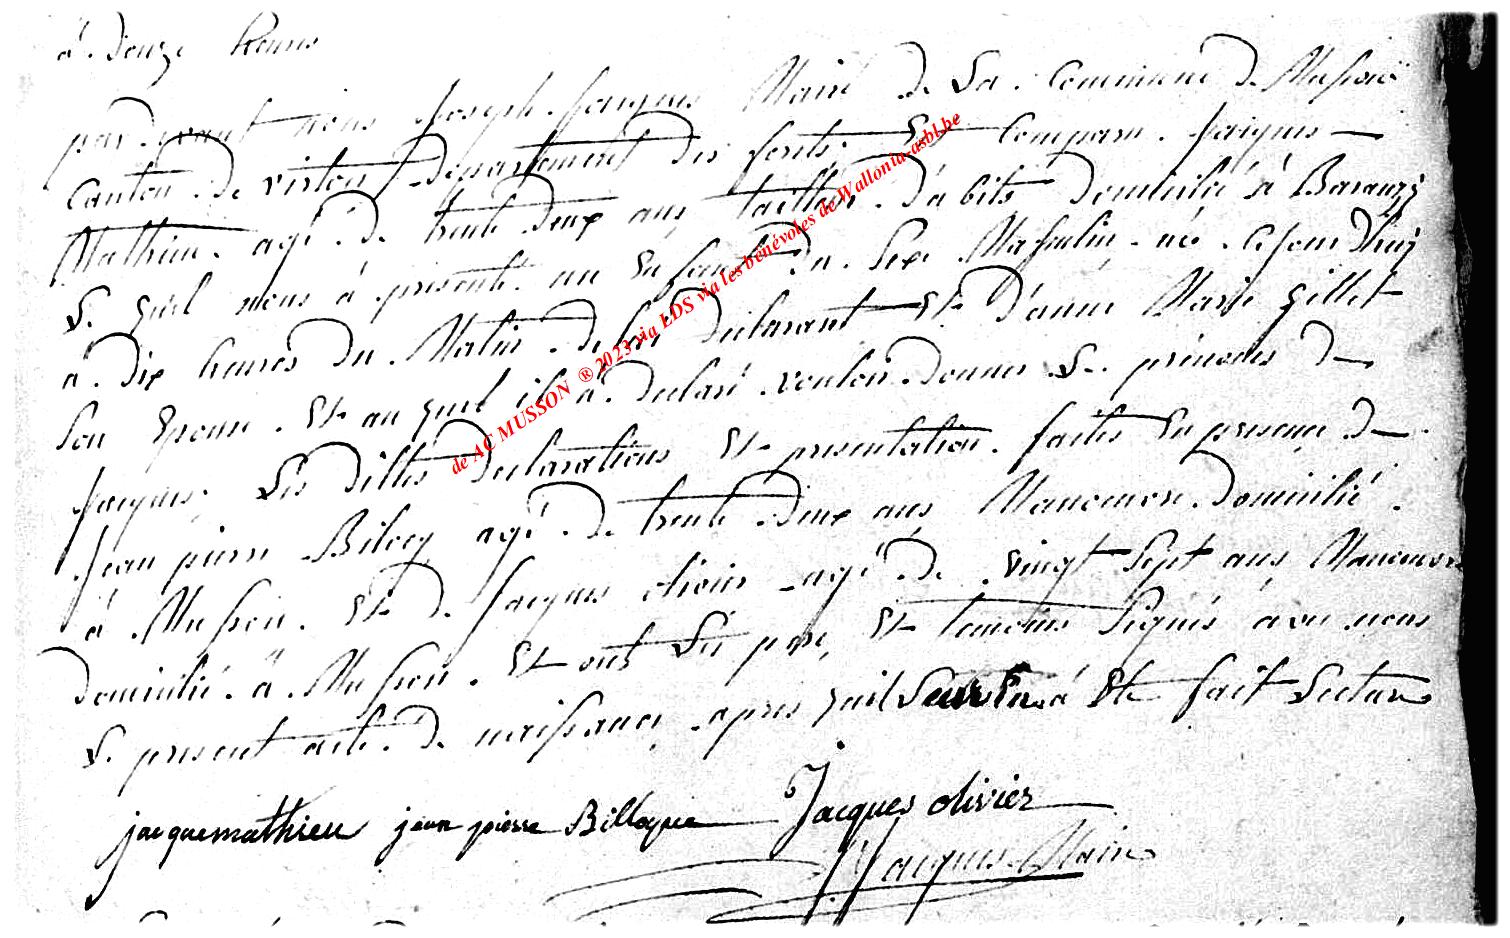 à douze heures
par devant nous Joseph Jacques Maire de La Commune de Musson
Canton de virton Département des forêts. Est Comparu Jacques
Mathieu agé de trente deux ans tailleur d'abits domicilié à Baranzy
Le quel nous à présenté un Enfant du Sexe Masculin né Cejourdhuy
à dix heures du Matin de lui déclarant Et d'anne Marie Gillet
Son Epouse. Et au quel il à déclaré vouloir donner Le prénoms de
Jacques, Les dittes déclarations Et présentation faites En présence de
Jean pierre Bilocq agé de trente Deux ans Manoeuvre domicilié
à Musson. Et de Jacques olivier agé de vingt Sept ans Manoeuvre
domicilié à Musson. Et ont Les père, Et temoins Signés avec nous
Le présent acte de naissance, après quil Leur En à Eté fait Lecture
jacquemathieu jean pierre Billoque Jacques olivier
JJacques Maire
de AC MUSSON ® 2023 via LDS via les bénévoles de Wallonia-asbl.be